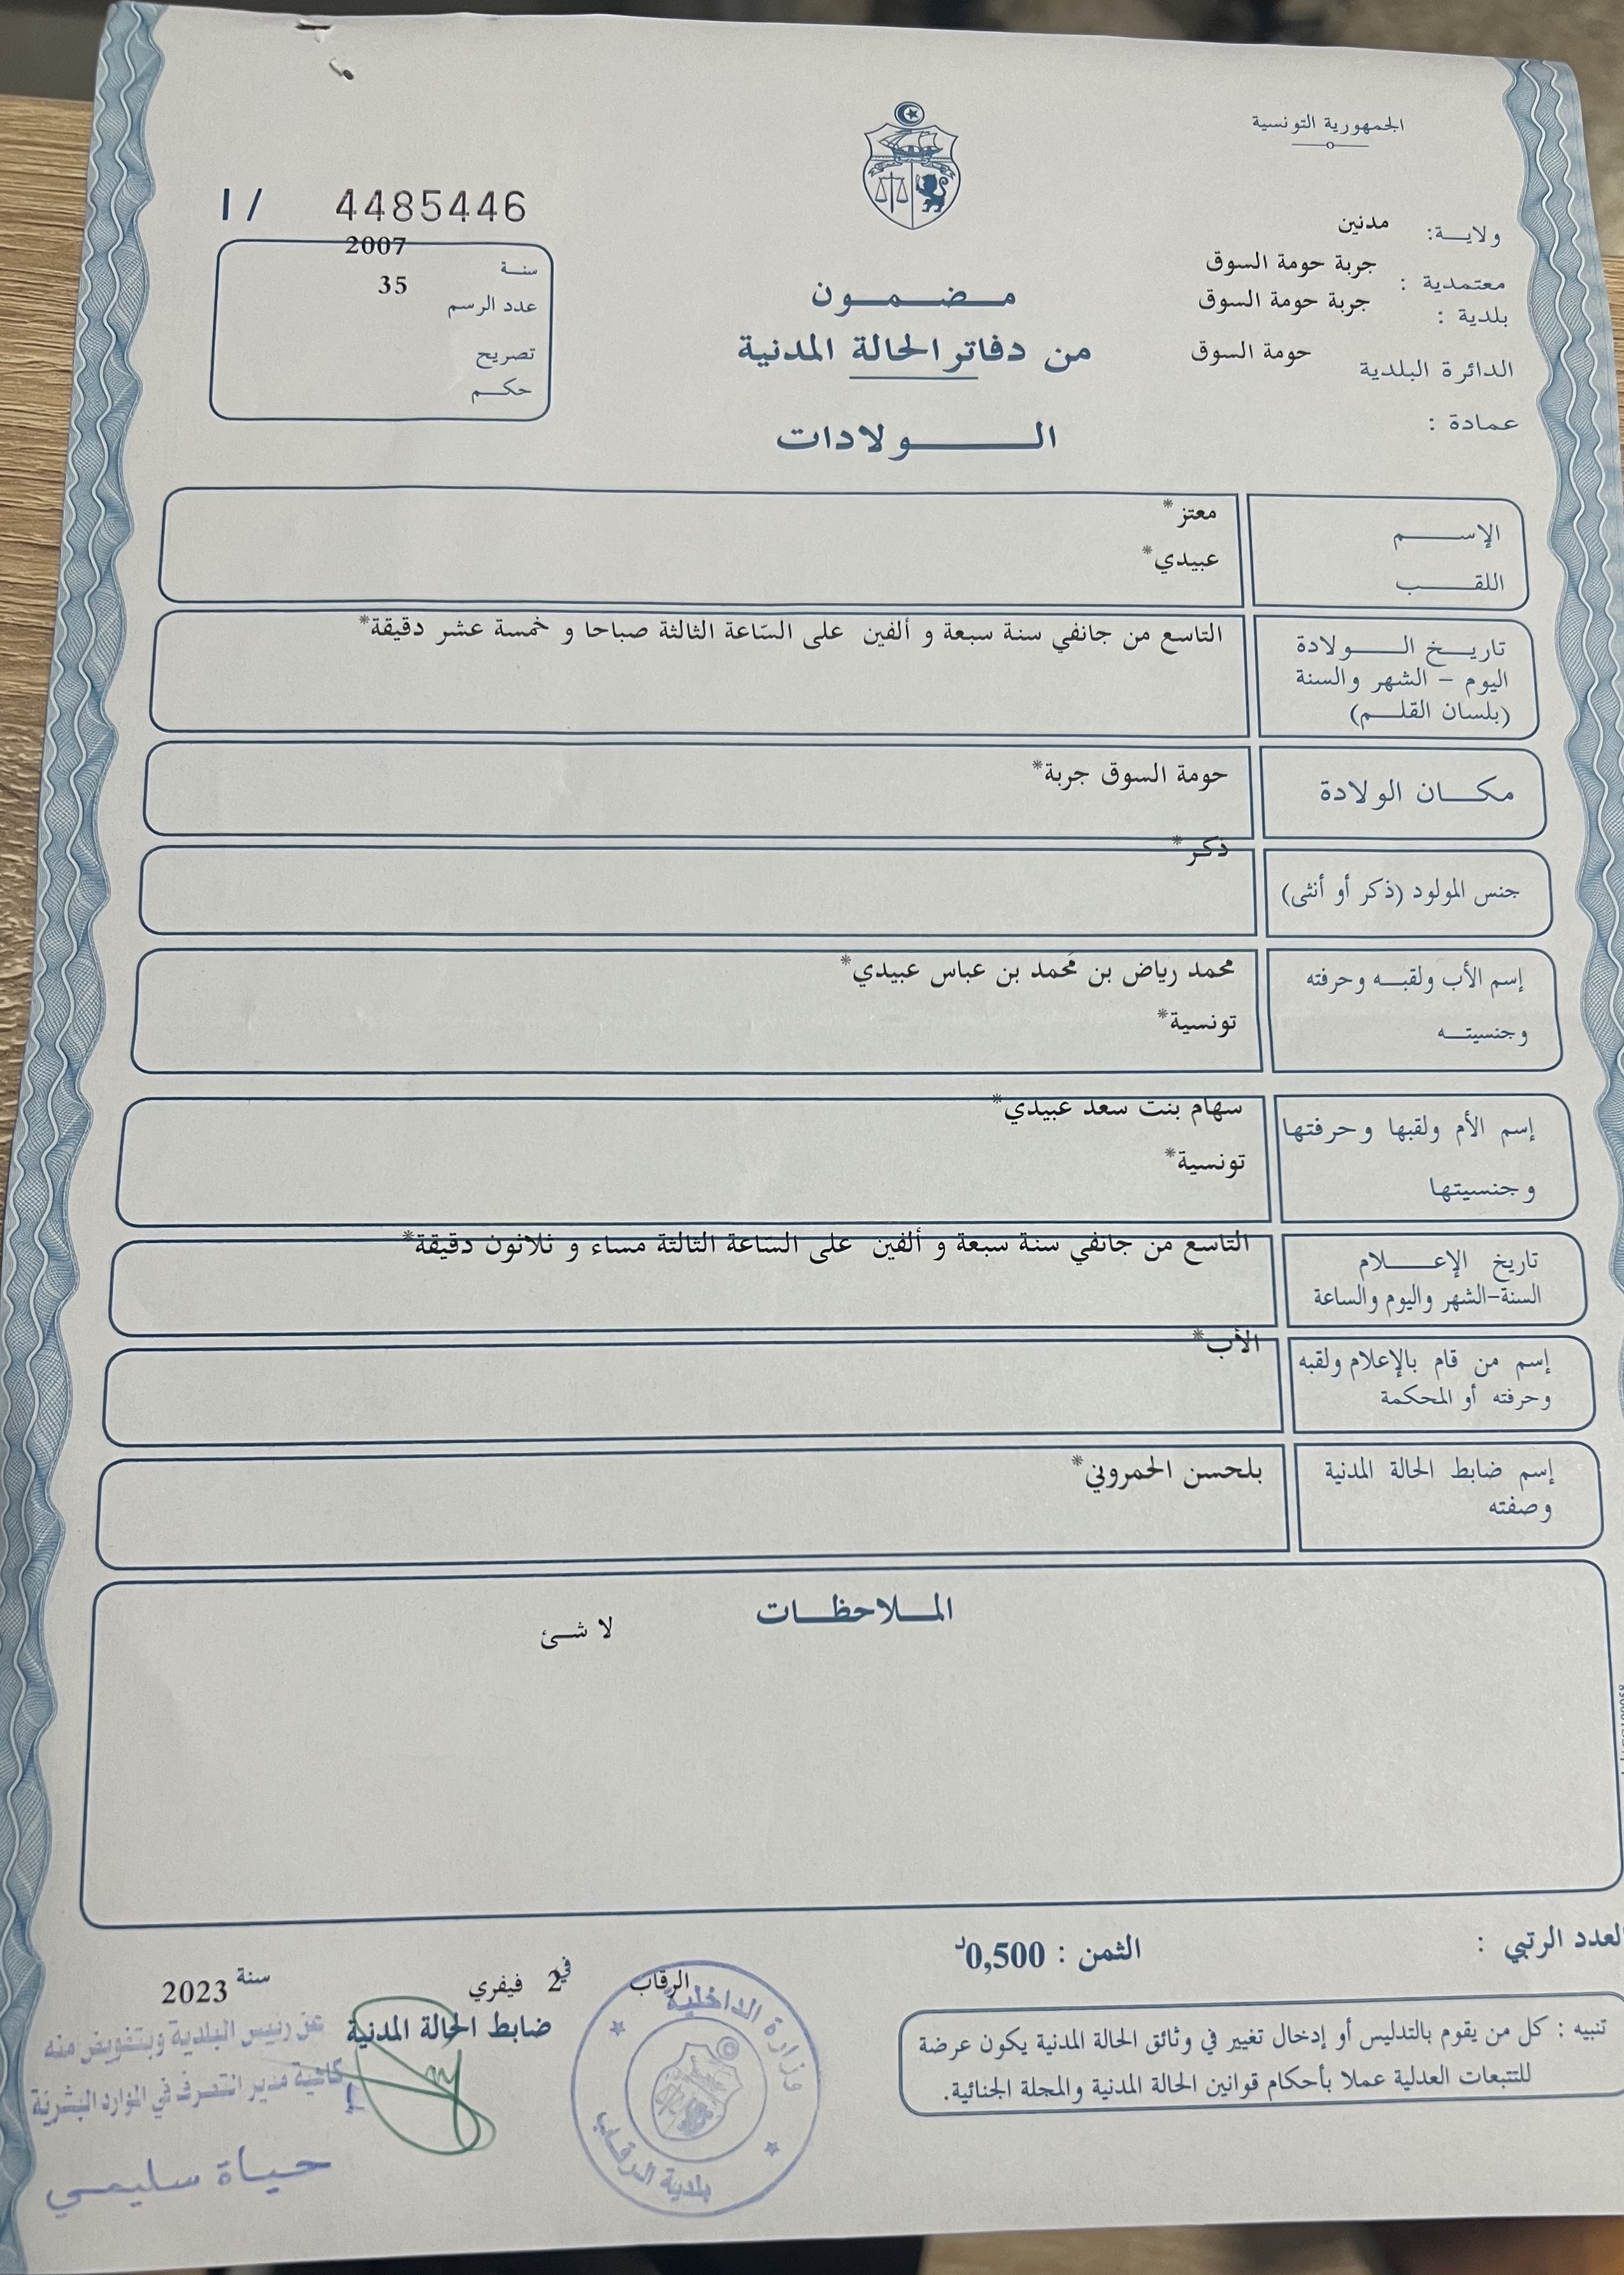 الجمهورية التونسية
ولايـــة: مدنين
معتمدية : جربة حومة السوق
بلدية : جربة حومة السوق
الدائرة البلدية حومة السوق
عمادة :
مـــضـــمـــون
من دفاتر الحالة المدنية
الـــــــولادات
I/ 4485446
2007
سنـــة
عدد الرسم 35
تصريح
حكـــم
الإســــــم معتز*
اللقـــــب عبيدي*
تاريـــخ الـــــولادة التاسع من جانفي سنة سبعة و ألفين على السّاعة الثالثة صباحا و خمسة عشر دقيقة*
اليوم – الشهر والسنة
(بلسان القلـــم)
مكـــان الولادة حومة السوق جربة*
جنس المولود (ذكر أو أنثى) ذكر*
إسم الأب ولقبـــه وحرفته محمد رياض بن مَحمد بن عباس عبيدي*
وجنسيتـــه تونسية*
إسم الأم ولقبها وحرفتها سهام بنت سعد عبيدي*
وجنسيتها تونسية*
تاريخ الإعـــــلام التاسع من جانفي سنة سبعة و ألفين على السّاعة الثالثة مساء و ثلاثون دقيقة*
السنة-الشهر واليوم والساعة
إسم من قام بالإعلام ولقبه الأب*
وحرفته أو المحكمة
إسم ضابط الحالة المدنية بلحسن الحمروني*
وصفته
المـــلاحظـــات
لا شـــئ
العدد الرتبي :
الثمن : 0,500د
الرقاب في 2 فيفري سنة 2023
ضابط الحالة المدنية
عن رئيس البلدية وبتفويض منه
كاهية مدير التصرف في الموارد البشرية
حياة سليمي
وزارة الداخلية
بلدية الرقاب
تنبيه : كل من يقوم بالتدليس أو إدخال تغيير في وثائق الحالة المدنية يكون عرضة
للتتبعات العدلية عملا بأحكام قوانين الحالة المدنية والمجلة الجنائية.